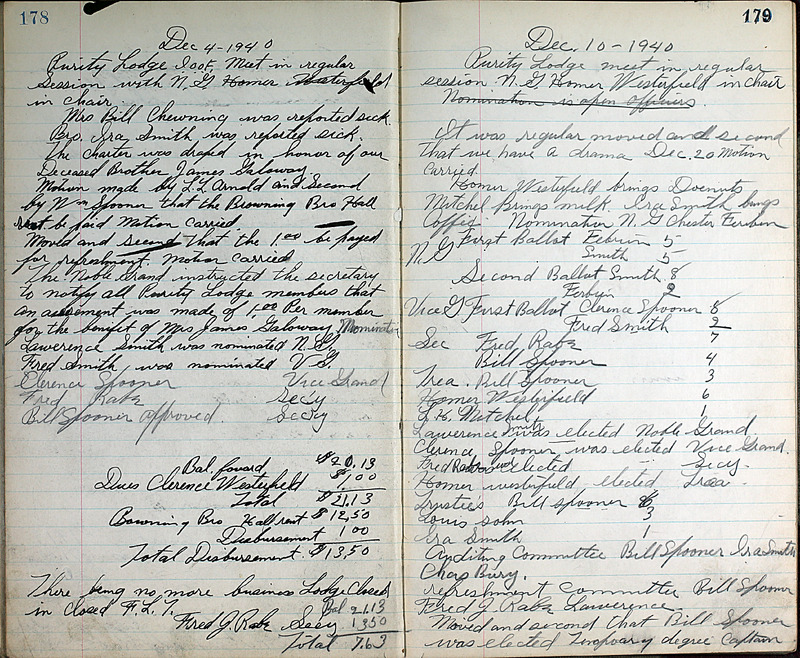 178
Dec 4-1940
Purity Lodge I.O.O.F. Meet in regular
Session with N.G Homer Westerfield
in chair.
Mrs Bill Chewning was reported sick.
Bro. Ira Smith was reported sick.
The Charter was draped in honor of our
Deceased Brother James Galoway
Motion made by L.L Arnold and Second
by Wm Spooner that the Browning Bro Hall
rent be paid Motion carried
Moved and Second that the 1.00 be payed
for refreshment. Motion carried
The Noble Grand instructed the secretary
to notify all Purity Lodge members that
an assesment was made of 1.00 Per member
for the benefit of Mrs James Galoway. Nomination
Lawerence Smith was nominated N.G.
Fred Smith, was nominated V.G.
Clerence Spooner Vice Grand
Fred Rabe Secy
Bill Spooner approved. Secy
Bal. foward $20.13
Dues Clerence Westerfield $1.00
Total $21.13
Bowning Bro Hall rent $12.50
Disbursement 1.00
Total Disbursement $13.50
There being no more business Lodge Closed
in closed F.L.T. Bal 21.13
Fred G. Rabe Secy 13.50
Total 7.63
179
Dec. 10-1940
Purity Lodge meet in regular
session N.G. Homer Westerfield in chair
Nomination is open officers
It was regular moved and second
that we have a drama Dec. 20 Motion
carried
Homer Westefield brings Doenuts
Mitchel Brings milk. Ira Smith brings
Coffiy Nomination N.G Chester
N.G First Ballot 5
Smith 5
Second Ballot Smith 8
2
Vice G First Ballot Clerence Spooner 8
Fred Smith 2
Sec Fred Rabe 7
Bill Spooner 4
Trea. Bill Spooner 3
Homer Westerfield 6
L.H. Mitchel 1
Lawerence Smith was elected Noble Grand
Clerence Spooner was elected Vice Grand.
Fred Rabe was elected Secy.
Homer westerfield elected Trea.
Trustees Bill Spooner 6
Louis John 3
Ira Smith 1
Auditing Committee Bill Spooner Ira Smith
Chas Bury.
refreshment committee Bill Spooner
Fred G. Rabe Lawerence.
Moved and second that Bill Spooner
was elected Tempoary degree Captain